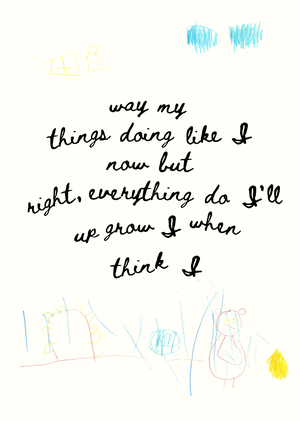 way my
things doing like I
now but
right, everything do I'll
up grow I when
think I